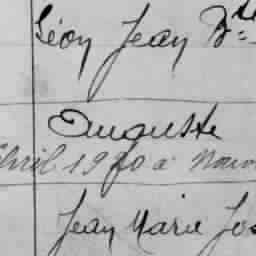 Léon Jean Bte
Auguste
Avril 1920 à
Jean Marie Jos